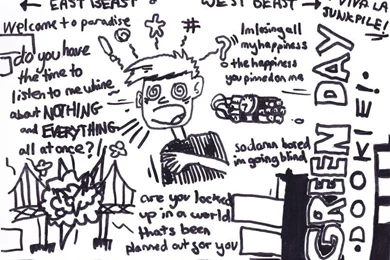 ← EAST BEAST
WEST BEAST →
VIVA LA
SUNKPILE!
Welcome to paradise
#
?
do you have
the time to
listen to me whine
about NOTHING
and EVERYTHING
all at once?
Im losing all
my happiness
the happiness
you pinned on me
so damn bored
im going blind
are you locked
up in a world
thats been
planned out for you
GREEN DAY
•DOOKIE!•